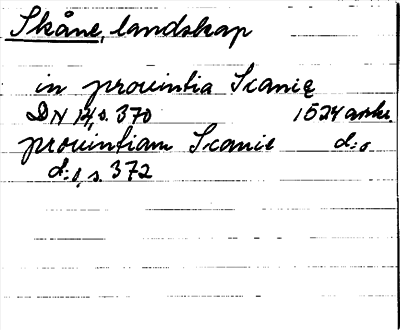 Skåne, landskap
in prouintia Scanię
DN 14, s. 370 1524 avskr.
prouintiam Scanie d:o
d:o, s. 372